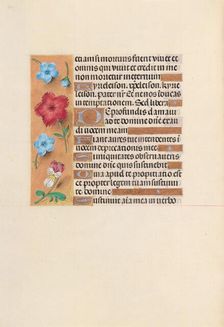 etiam si mortuus fuerit vivet et
omnis qui vivit et credit in me
non morietur in eternum
Kyrieleison. xpeleison. kyrie
leison. Pater nr Et ne nos inducas
in temptationem. Sed libera
De profundis clamavi
ad te domine dne exau
di vocem meam
Fiant aures tue intendentes i
vocem deprecationis mee
Si iniquitates observaveris
domine dne quis sustinebit
Quia apud te propitiatio est
et propter legem tuam sustinui
te domine
Sustinuit aia mea in verbo